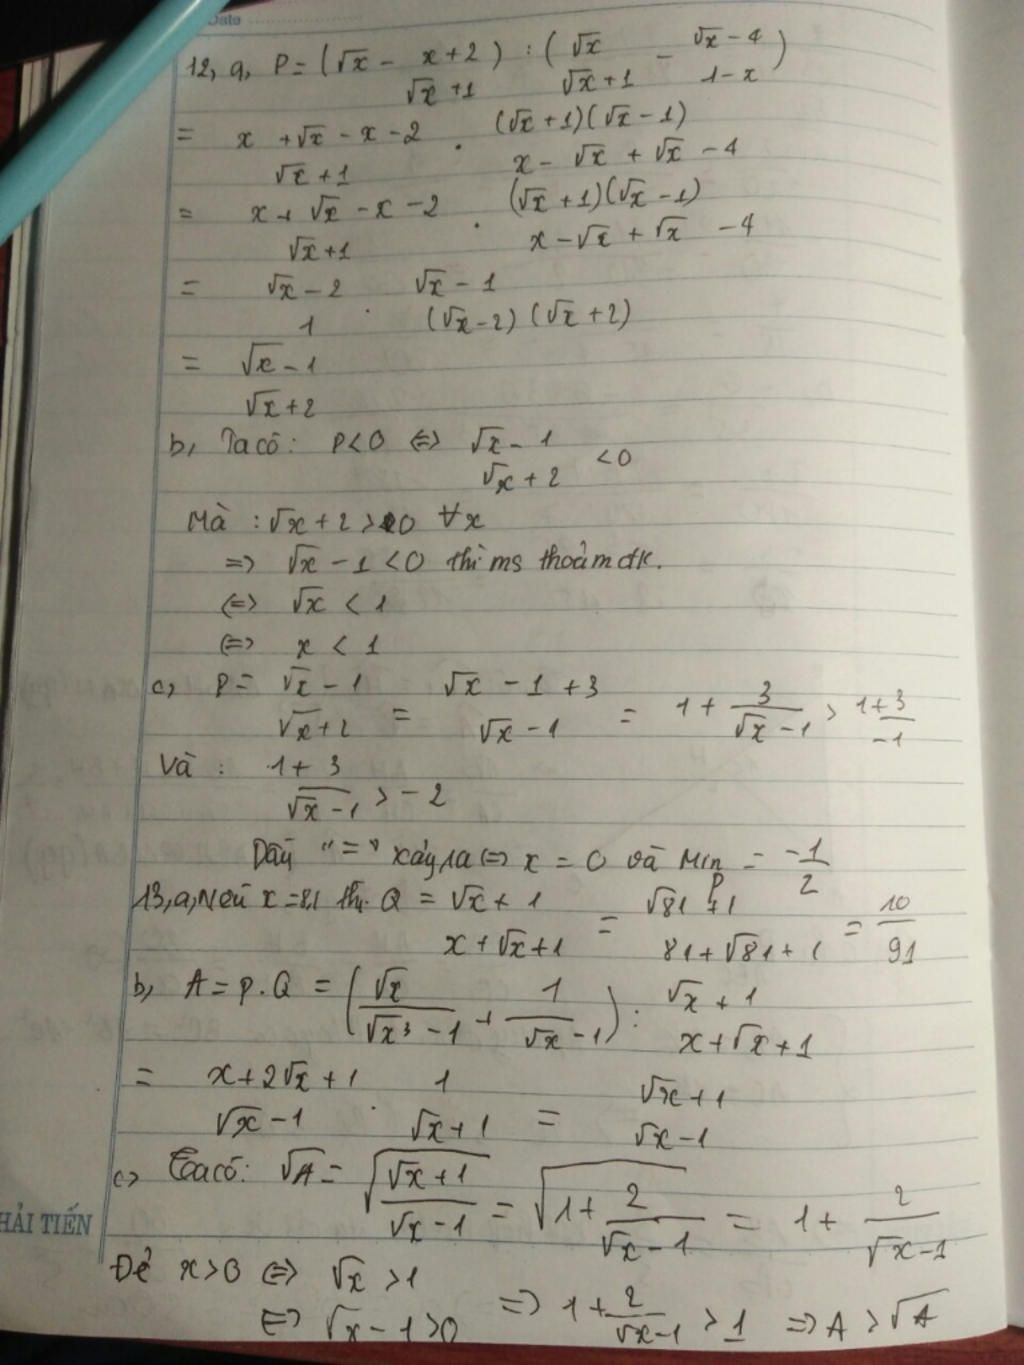 Date
12, a, P = (√x - x+2 ) : ( √x - √x-4 )
√x+1 √x+1 1-x
= x+√x-x-2 . (√x+1)(√x-1)
√x+1 x-√x+√x-4
= x+√x-x-2 . (√x+1)(√x-1)
√x+1 x-√x+√x-4
= √x-2 . √x-1
1 (√x-2)(√x+2)
= √x-1
√x+2
b, Ta có: P<0 ⇔ √x-1 <0
√x+2
Mà : √x+2 > 0 ∀x
⇒ √x-1 <0 thì ms thoả m đk.
⇔ √x < 1
⇔ x < 1
c, P= √x-1 = √x-1+3 = 1+ 3 > 1+3
√x+2 √x-1 √x-1 -1
Và : 1+3 > -2
√x-1
Dấu "=" xảy ra ⇔ x = 0 và Min P = -1/2
13, a, Nếu x=81 th. Q = √x+1 = √81+1 = 10
x+√x+1 81+√81+1 91
b, A = P.Q = ( √x + 1 ) : √x+1
√x³-1 √x-1 x+√x+1
= x+2√x+1 . 1 = √x+1
√x-1 √x+1 √x-1
c, Ta có: √A = √(√x+1 / √x-1) = √(1+ 2 / √x-1) = 1+ 2 / √x-1
HẢI TIẾN
Để x>0 ⇔ √x >1
⇔ √x-1>0 ⇒ 1+ 2 / √x-1 > 1 ⇒ A > √A